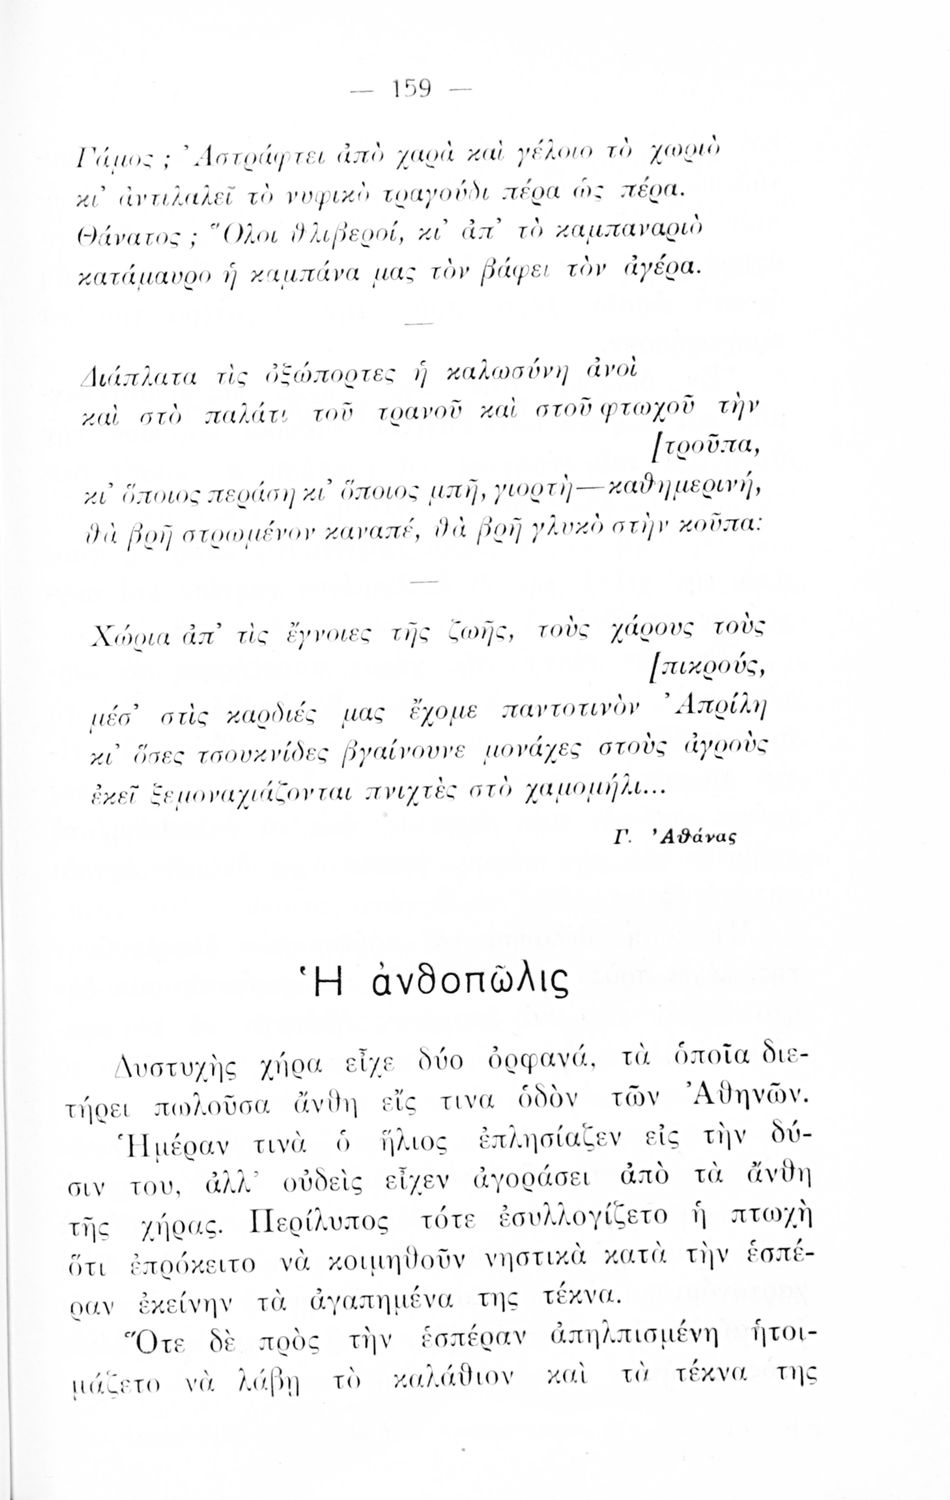 — 159 —
Γάμος ; Ἀστράφτει ἀπὸ χαρὰ καὶ γέλοιο τὸ χωριὸ
κι᾿ ἀντιλαλεῖ τὸ νυφικὸ τραγούδι πέρα ὡς πέρα.
Θάνατος ; Ὅλοι θλιβεροί, κι᾿ ἀπ᾿ τὸ καμπαναριὸ
κατάμαυρο ἡ καμπάνα μας τὸν βάφει τὸν ἀγέρα.
—
Διάπλατα τὶς ὀξώπορτες ἡ καλωσύνη ἀνοὶ
καὶ στὸ παλάτι τοῦ τρανοῦ καὶ στοῦ φτωχοῦ τὴν
[τροῦπα,
κι᾿ ὅποιος περάση κι᾿ ὅποιος μπῆ, γιορτὴ—καθημερινή,
θὰ βρῆ στρωμένον καναπέ, θὰ βρῆ γλυκὸ στὴν κοῦπα:
—
Χώρια ἀπ᾿ τὶς ἔγνοιες τῆς ζωῆς, τοὺς χάρους τοὺς
[πικρούς,
μέσ᾿ στὶς καρδιές μας ἔχομε παντοτινὸν Ἀπρίλη
κι᾿ ὅσες τσουκνίδες βγαίνουνε μονάχες στοὺς ἀγροὺς
ἐκεῖ ξεμοναχιάζονται πνιχτὲς στὸ χαμομήλι...
Γ. Ἀθάνας
Ἡ ἀνθοπῶλις
Δυστυχὴς χήρα εἶχε δύο ὀρφανά, τὰ ὁποῖα διε-
τήρει πωλοῦσα ἄνθη εἴς τινα ὁδὸν τῶν Ἀθηνῶν.
Ἡμέραν τινὰ ὁ ἥλιος ἐπλησίαζεν εἰς τὴν δύ-
σιν του, ἀλλ᾿ οὐδεὶς εἶχεν ἀγοράσει ἀπὸ τὰ ἄνθη
τῆς χήρας. Περίλυπος τότε ἐσυλλογίζετο ἡ πτωχὴ
ὅτι ἐπρόκειτο νὰ κοιμηθοῦν νηστικὰ κατὰ τὴν ἑσπέ-
ραν ἐκείνην τὰ ἀγαπημένα της τέκνα.
Ὅτε δὲ πρὸς τὴν ἑσπέραν ἀπηλπισμένη ἡτοι-
μάζετο νὰ λάβῃ τὸ καλάθιον καὶ τὰ τέκνα της